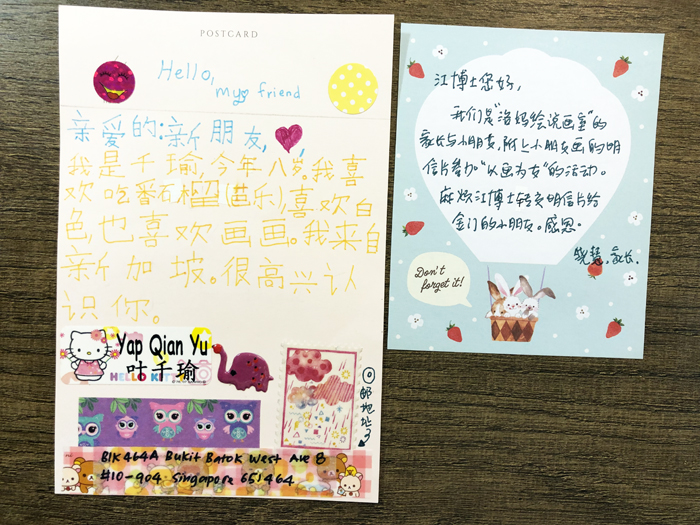 POSTCARD
Hello,
my friend
亲爱的:新朋友,
我是千瑜,今年八岁。我喜
欢吃番石榴(芭乐),喜欢白
色,也喜欢画画。我来自
新加坡。很高兴认
识你。
Yap Qian Yu
HELLO KITTY
叶千瑜
邮地址
Blk 464A Bukit Batok West Ave 8
#10-904. Singapore 651464
江博士您好,
我们是“洛妈绘说画画”的
家长与小朋友,附上小朋友画的明
信片参加“以画为友”的活动。
麻烦江博士转交明信片给
金门的小朋友。感恩。
家长.
Don't
forget it!